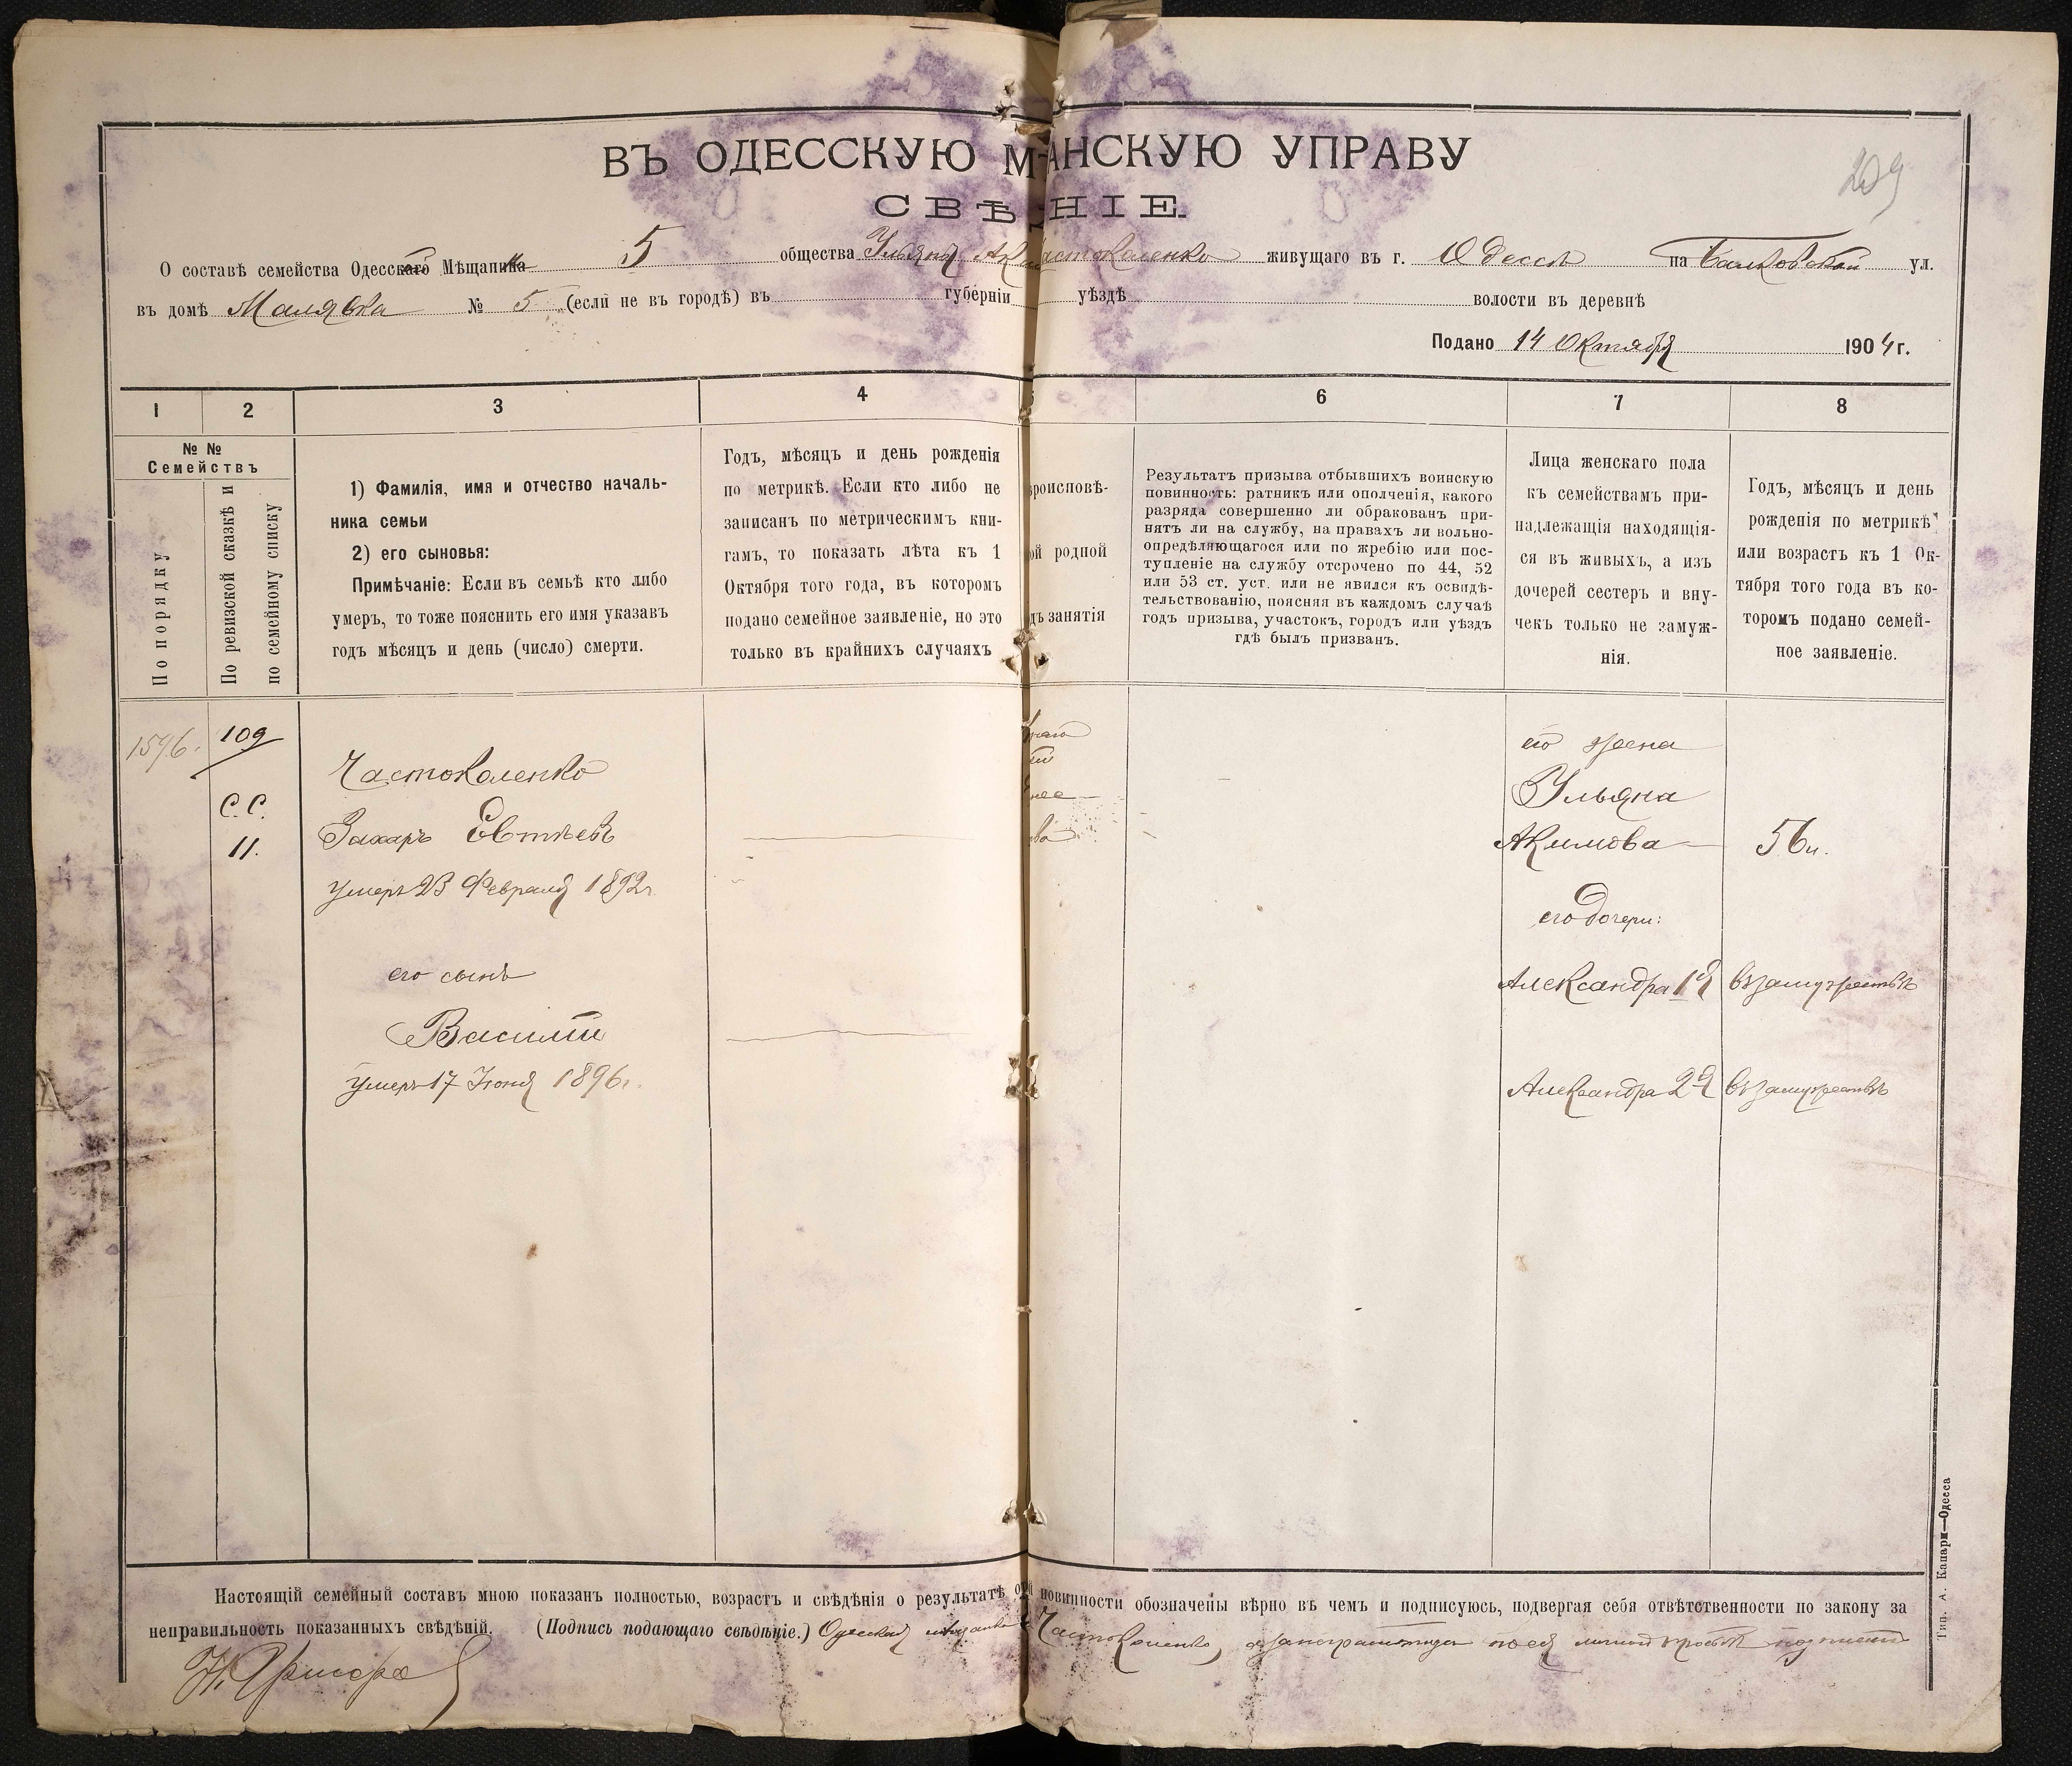 ВЪ ОДЕССКУЮ М АНСКУЮ УПРАВУ
СВѢ НІЕ.
209
О составѣ семейства Одесской Мѣщанки 5 общества Ульяны Аки астоколенко живущаго въ г. Одессѣ на Балковской ул.
въ домѣ Малявка № 5 (если не въ городѣ) въ губерніи уѣздѣ волости въ деревнѣ
Подано 14 Октября 1904 г.
1 2 3 4 6 7 8
№ №
Семействъ
По порядку
По ревизской сказкѣ и
по семейному списку
1) Фамилія, имя и отчество началь-
ника семьи
2) его сыновья:
Примѣчаніе: Если въ семьѣ кто либо
умеръ, то тоже пояснить его имя указавъ
годъ мѣсяцъ и день (число) смерти.
Годъ, мѣсяцъ и день рожденія
по метрикѣ. Если кто либо не
записанъ по метрическимъ кни-
гамъ, то показать лѣта къ 1
Октября того года, въ которомъ
подано семейное заявленіе, но это
только въ крайнихъ случаяхъ
роисповѣ-
ой родной
дъ занятія
Результатъ призыва отбывшихъ воинскую
повинность: ратникъ или ополченія, какого
разряда совершенно ли обракованъ при-
нятъ ли на службу, на правахъ ли вольно-
опредѣляющагося или по жребію или пос-
тупленіе на службу отсрочено по 44, 52
или 53 ст. уст. или не явился къ освидѣ-
тельствованію, поясняя въ каждомъ случаѣ
годъ призыва, участокъ, городъ или уѣздъ
гдѣ былъ призванъ.
Лица женскаго пола
къ семействамъ при-
надлежащія находящія-
ся въ живыхъ, а изъ
дочерей сестеръ и вну-
чекъ только не замуж-
нія.
Годъ, мѣсяцъ и день
рожденія по метрикѣ
или возрастъ къ 1 Ок-
тября того года въ ко-
торомъ подано семей-
ное заявленіе.
1596.
109
С.С.
11.
Частоколенко
Захаръ Евтѣевъ
умеръ 23 Февраля 1892г.
его сынъ
Василій
умеръ 17 Іюня 1896г.
его жена
Ульяна
Акимова 56 л.
его дочери:
Александра 1я въ замужествѣ
Александра 2я въ замужествѣ
Настоящій семейный составъ мною показанъ полностью, возрастъ и свѣдѣнія о результатѣ о й повинности обозначены вѣрно въ чемъ и подписуюсь, подвергая себя отвѣтственности по закону за
неправильность показанныхъ свѣдѣній. (Подпись подающаго свѣдѣніе.) Одесская мѣщанка Частоколенко, а неграмотную по ея личной просьбѣ подписалъ
Тип. А. Капари—Одесса